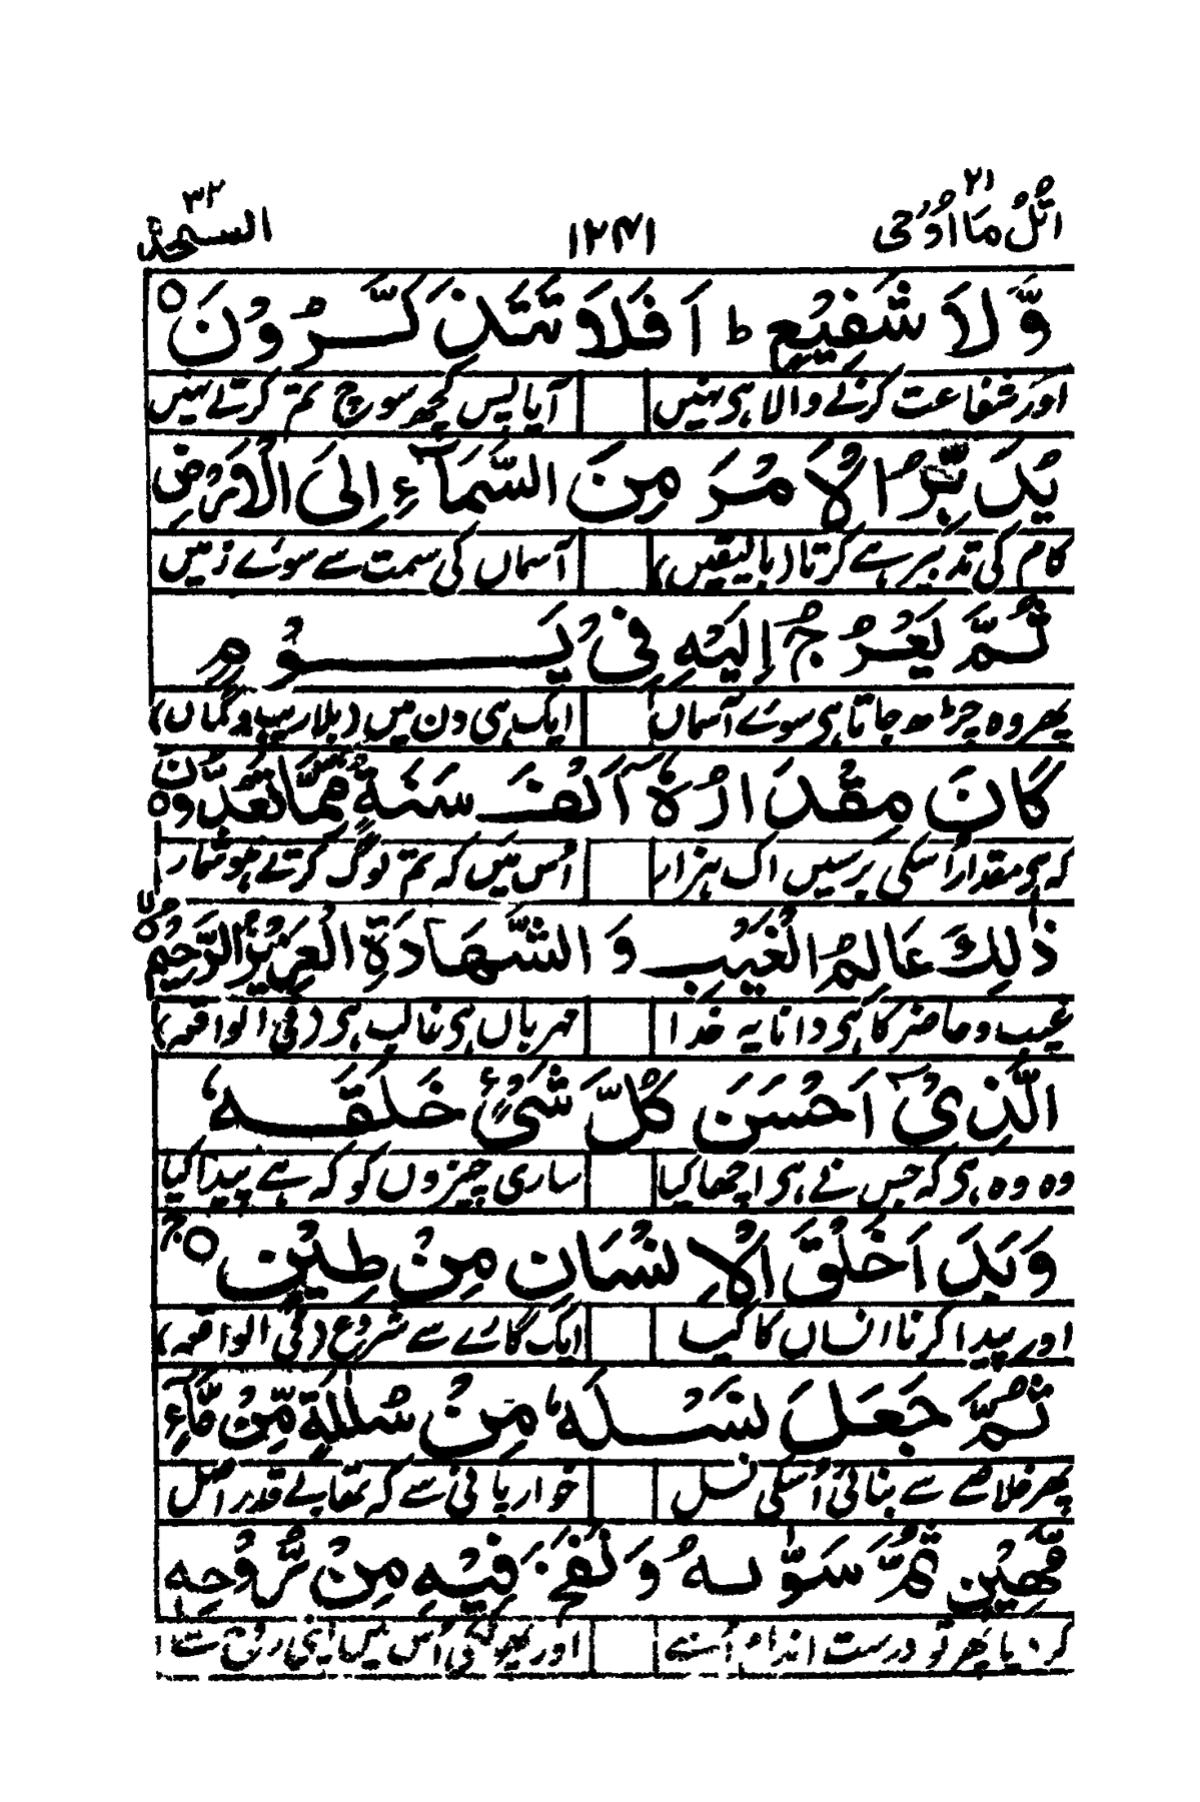 اتل ما اوحی ۲۱
۱۲۴۱
السجدة ۳۲
وَّلَا شَفِيْعٍ ؕ اَفَلَا تَتَذَكَّرُوْنَ ○
اور شفاعت کرنے والا ہی نہیں آیا پس کچھ سوچ تم کرتے نہیں
يُدَبِّرُ الْاَمْرَ مِنَ السَّمَآءِ اِلَى الْاَرْضِ
کام کی تدبیر ہے کرتا (بالیقیں) آسماں کی سمت سے سوئے زمیں
ثُمَّ يَعْرُجُ اِلَيْهِ فِيْ يَوْمٍ
پھر وہ چڑھ جاتا ہی سوئے آسماں ایک ہی دن میں (بلاریب و گماں)
كَانَ مِقْدَارُهٗٓ اَلْفَ سَنَةٍ مِّمَّا تَعُدُّوْنَ ○
کہ ہی مقدار اُسکی برسیں اک ہزار اُس میں کہ تم لوگ کرتے ہو شمار
ذٰلِكَ عَالِمُ الْغَيْبِ وَ الشَّهَادَةِ الْعَزِيْزُ الرَّحِيْمُ ○ۙ
غیب و حاضر کا ہی دانا یہ خدا مہرباں ہی غالب ہی (فی الواقعہ)
الَّذِيْٓ اَحْسَنَ كُلَّ شَيْءٍ خَلَقَهٗ
وہ وہ ہی کہ جس نے ہی اچھا کیا ساری چیزوں کو کہ ہے پیدا کیا
وَبَدَاَ خَلْقَ الْاِنْسَانِ مِنْ طِيْنٍ ○ۚ
اور پیدا کرنا انساں کا کیا ایک گارے سے شروع (فی الواقعہ)
ثُمَّ جَعَلَ نَسْلَهٗ مِنْ سُلٰلَةٍ مِّنْ مَّآءٍ
پھر خلاصے سے بنائی اُسکی نسل خوار پانی سے کہ تھا بے قدر اصل
مَّهِيْنٍ ثُمَّ سَوّٰىهُ وَ نَفَخَ فِيْهِ مِنْ رُّوْحِهٖ
کر دیا پھر تو درست اندام اُسنے اور پھونکی اُس میں اپنی روح سے